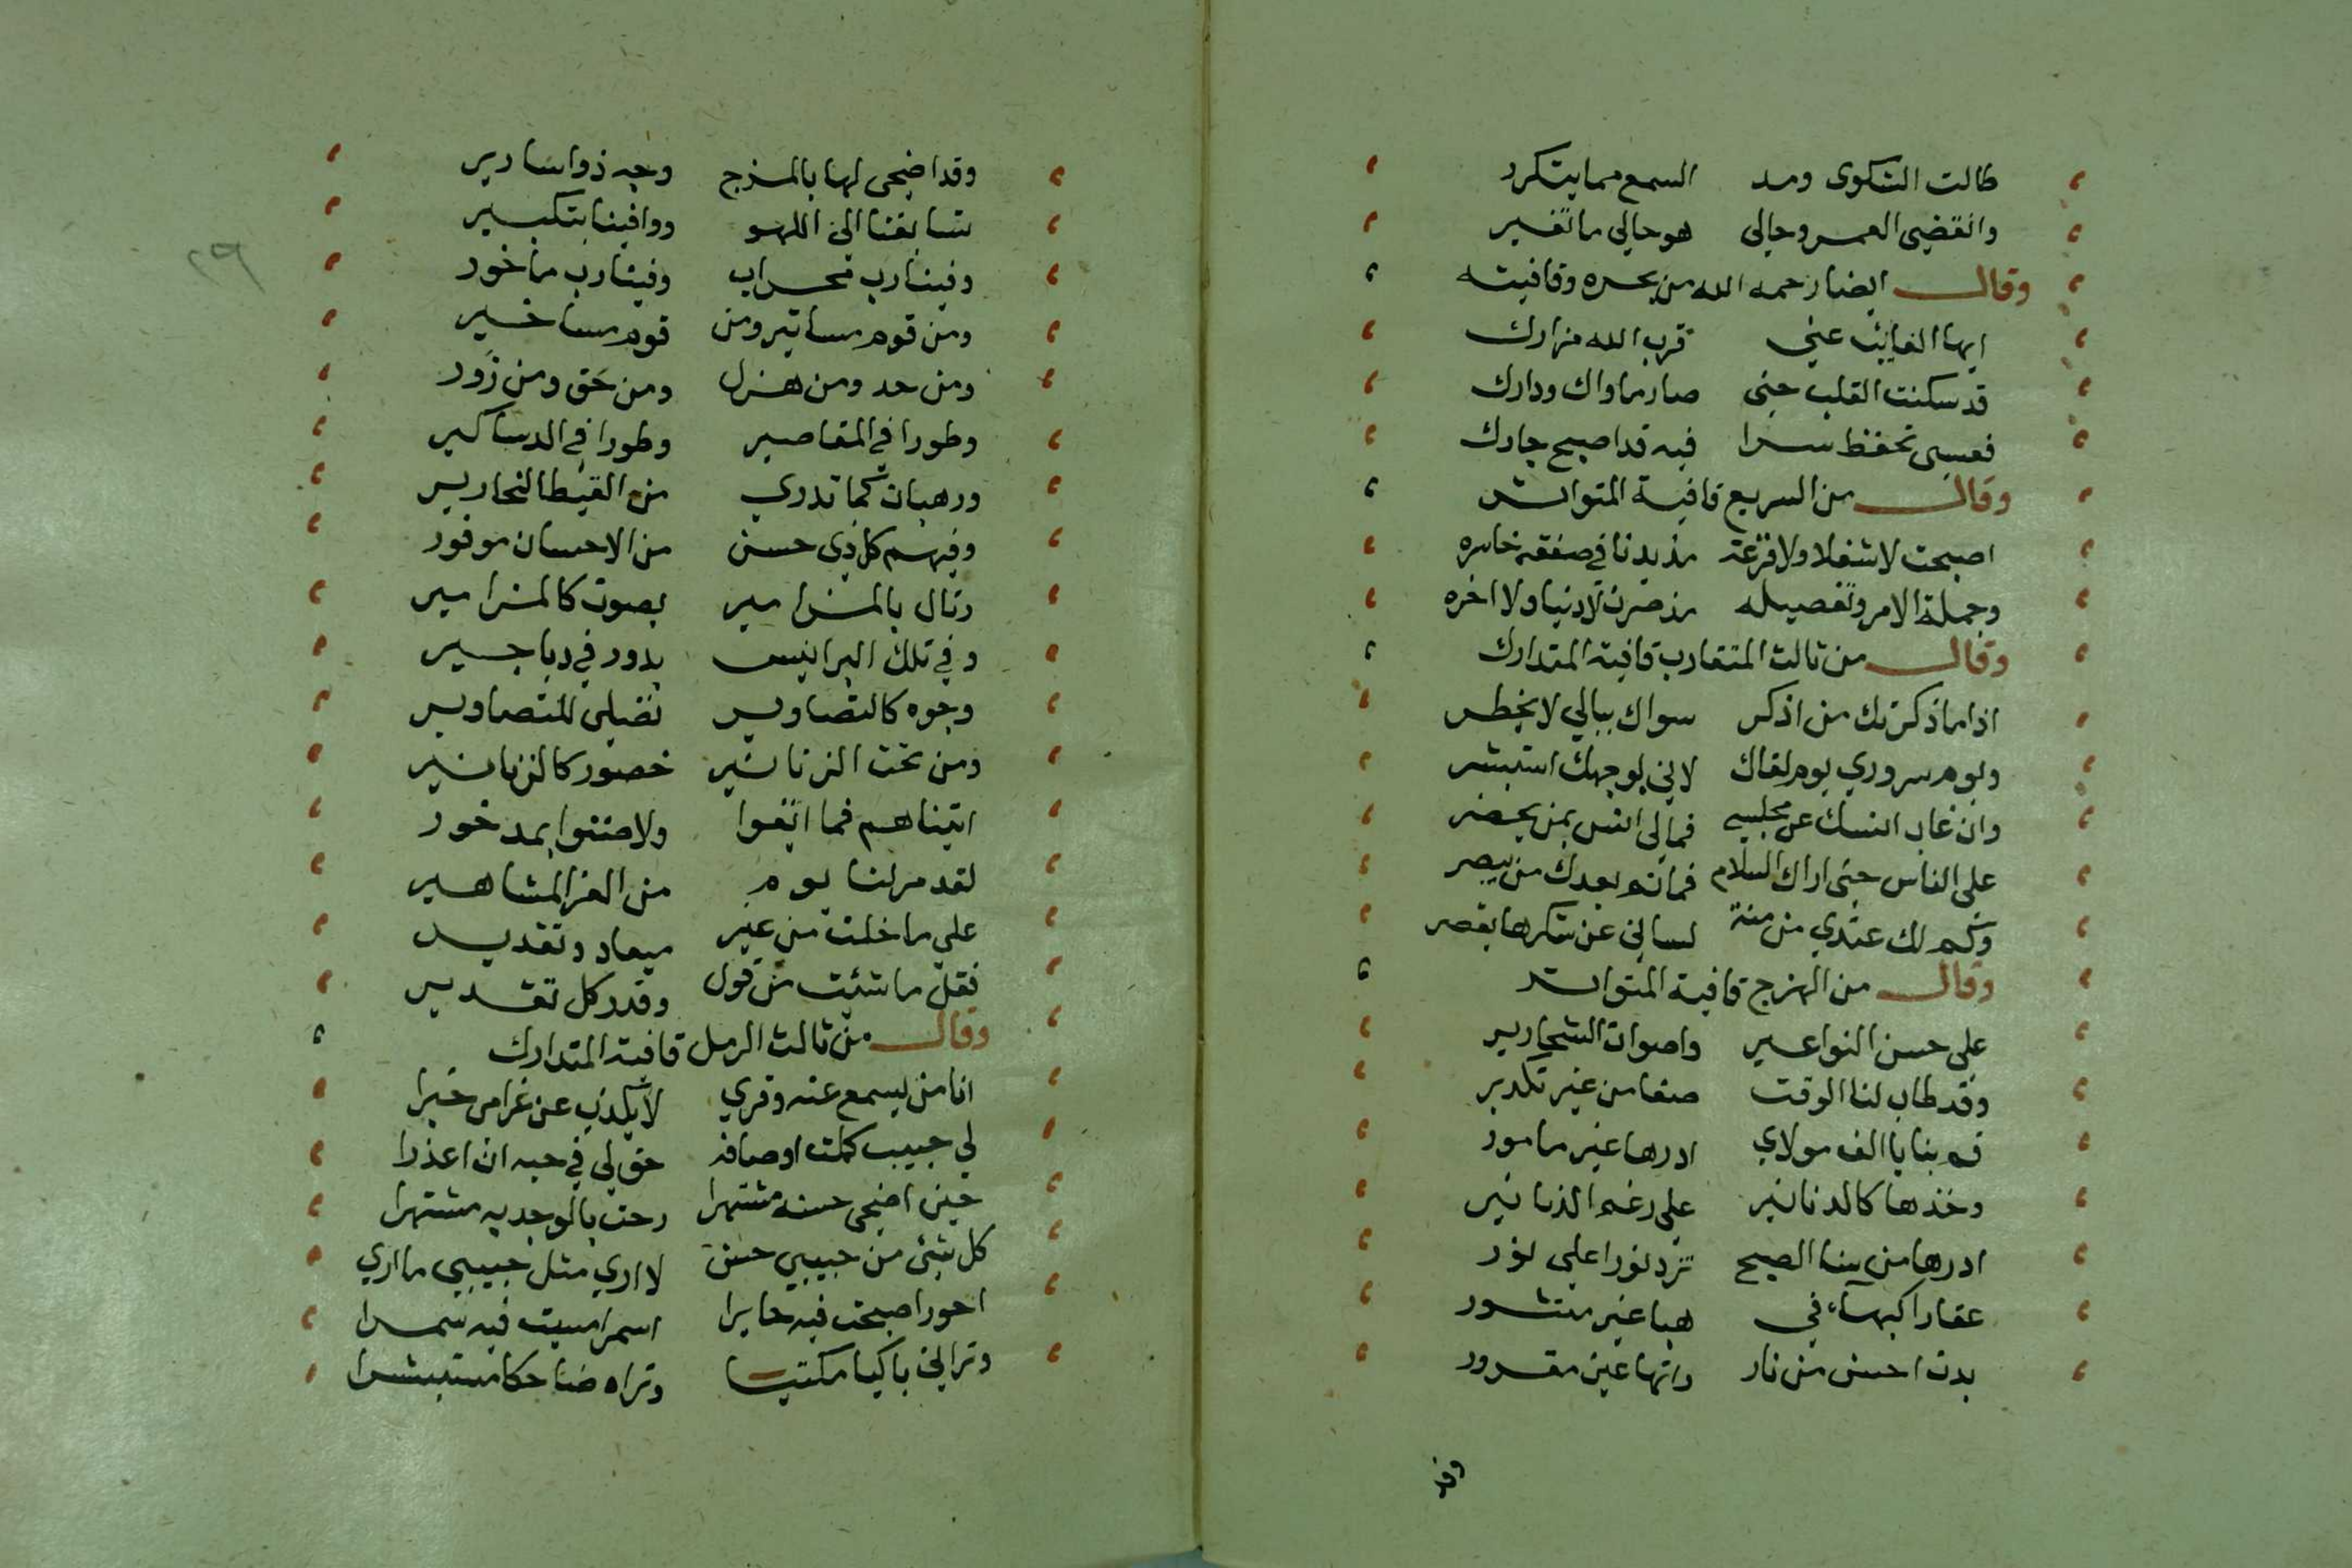 طالت الشكوى ومد السمع مما يتكرر
وانقضى العمر وحالي هو حالي ما تغير
وقال ايضا رحمه الله من بحره وقافيته
ايها الغايب عني قرب الله مزارك
قد سكنت القلب حتى صار ماواك ودارك
فعسى تحفظ سرا فيه قد اصبح جارك
وقال من السريع قافية المتواتر
اصبحت لا شغلا ولا فزعة مذبدنا في صفقه خاسره
وجملة الامر وتفصيله مذ صرت لا دنيا ولا اخره
وقال من ثالث المتقارب قافية المتدارك
اذا ما ذكرتك من اذكر سواك ببالي لا يخطر
ويوم سروري يوم لقاك لاني بوجهك استبشر
وان غاب انسك عن مجلسي فمالي انس بمن يحضر
على الناس حتى اراك السلام فماتم بعدك من يبصر
وكم لك عندي من منة لساني عن شكرها يقصر
وقال من الهزج قافية المتواتر
على حسن النواعير واصوات الشحارير
وقد طاب لنا الوقت صفا من غير تكدير
قم بنا يا الف مولاي ادرها غير مامور
وخذها كالدنانير على رغم الدنانير
ادرها من سنا الصبح تزد نورا على نور
عقارا كهبآء في هبا غير منثور
بدت احسن من نار راتها عين مقرور
وقد
٢٩
وقد اضحى لها بالمزج وجه ذو اسارير
تسابقنا الى اللهو ووافينا بتكبير
وفينا رب محراب وفينا رب ماخور
ومن قوم مساتير ومن قوم مساخير
ومن جد ومن هزل ومن حق ومن زور
وطورا في المقاصير وطورا في الدساكير
ورهبان كما تدري من القبط النحارير
وفيهم كل ذي حسن من الاحسان موفور
وتال بالمزامير بصوت كالمزامير
وفي تلك البرانيس بدور في دياجير
وجوه كالتصاوير تصلي للتصاوير
ومن تحت الزنانير خصور كالزنانير
اتيناهم فما ابقوا ولا ضنوا بمدخور
لقد مر لنا يوم من الغر المشاهير
على ما خلت من غير ميعاد وتقدير
فقل ما شئت من قول وقدر كل تقدير
وقال من ثالث الرمل قافية المتدارك
انا من يسمع عنه وترى لا تكذب عن غرامي خبرا
لي حبيب كملت اوصافه حق لي في حبه ان اعذرا
حين اضحى حسنه مشتهرا رحت بالوجد به مشتهرا
كل شئ من حبيبي حسن لا ارى مثل حبيبي ما ارى
احور اصبحت فيه حايرا اسمر امسيت فيه سمرا
وتراني باكيا مكتيبا وتراه ضاحكا مستبشرا